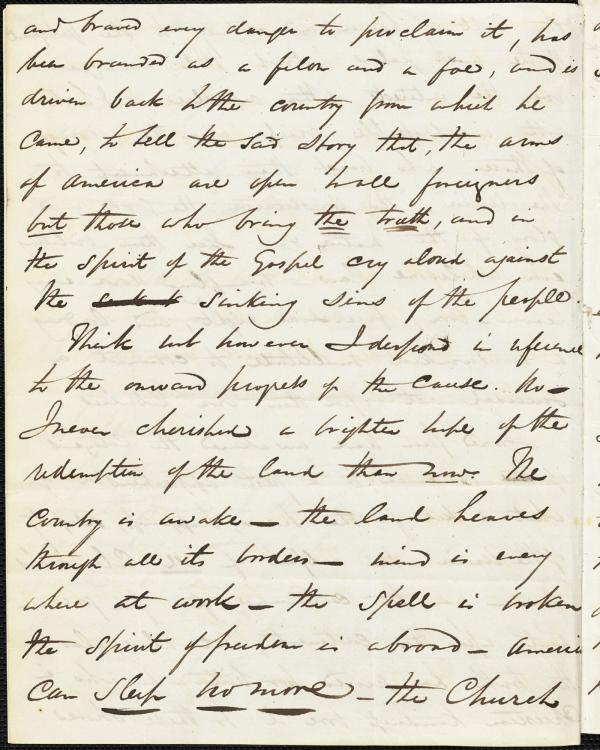 and braved every danger to proclaim it, has
been branded as a felon and a foe, and is
driven back to the country from which he
came, to tell the sad story that, the arms
of America are open to all foreigners
but those who bring the truth, and in
the spirit of the Gospel cry aloud against
the sinking sins of the people.
Think not however I despond in reference
to the onward progress of the cause. No—
I never cherished a brighter hope of the
redemption of the land than now. The
Country is awake — the land heaves
through all its borders — mind is every
where at work — the spell is broken
the spirit of freedom is abroad — America
can sleep no more — the Church